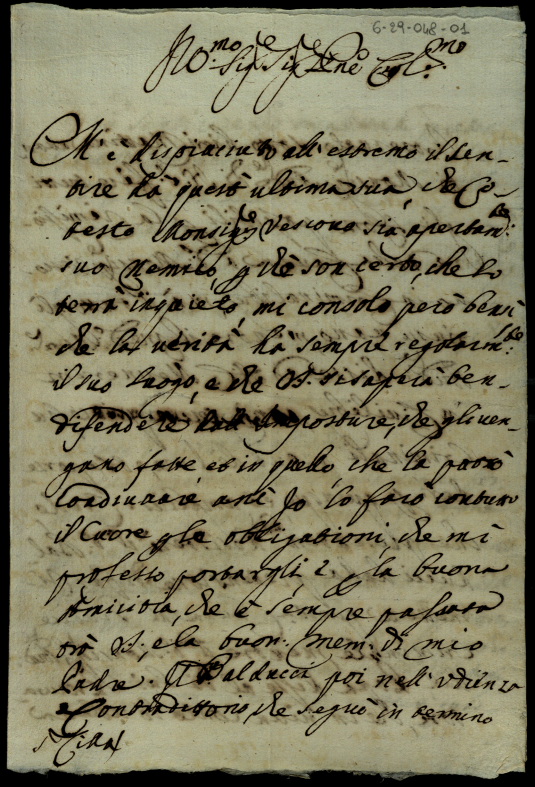 6-29-048-01
Ill.mo Sig.re Sig.re Pne Col.mo
M'è dispiaciuto all'estremo il sen-
tire da quest'ultima sua, che Co-
testo Monsig.re Vescovo sia apertam.te
suo Nemico, p che son certo, che lo
terrà inquieto, mi consolo però bensì
che la verità hà sempre regolarm.te
il suo luogo, e che VS. si saperà ben
difendere dall'Imposture, che gli ven-
gano fatte et io quello, che la potrò
coadiuvare Io lo farò con tutto
il Cuore p le obbligationi, che mi
professo portargli, e p la buona
Amicitia, che è sempre passata
trà VS., e la buon: mem: di mio
Padre. Il Balducci poi nell'Udienza
e Contradittorio, che seguì in termino